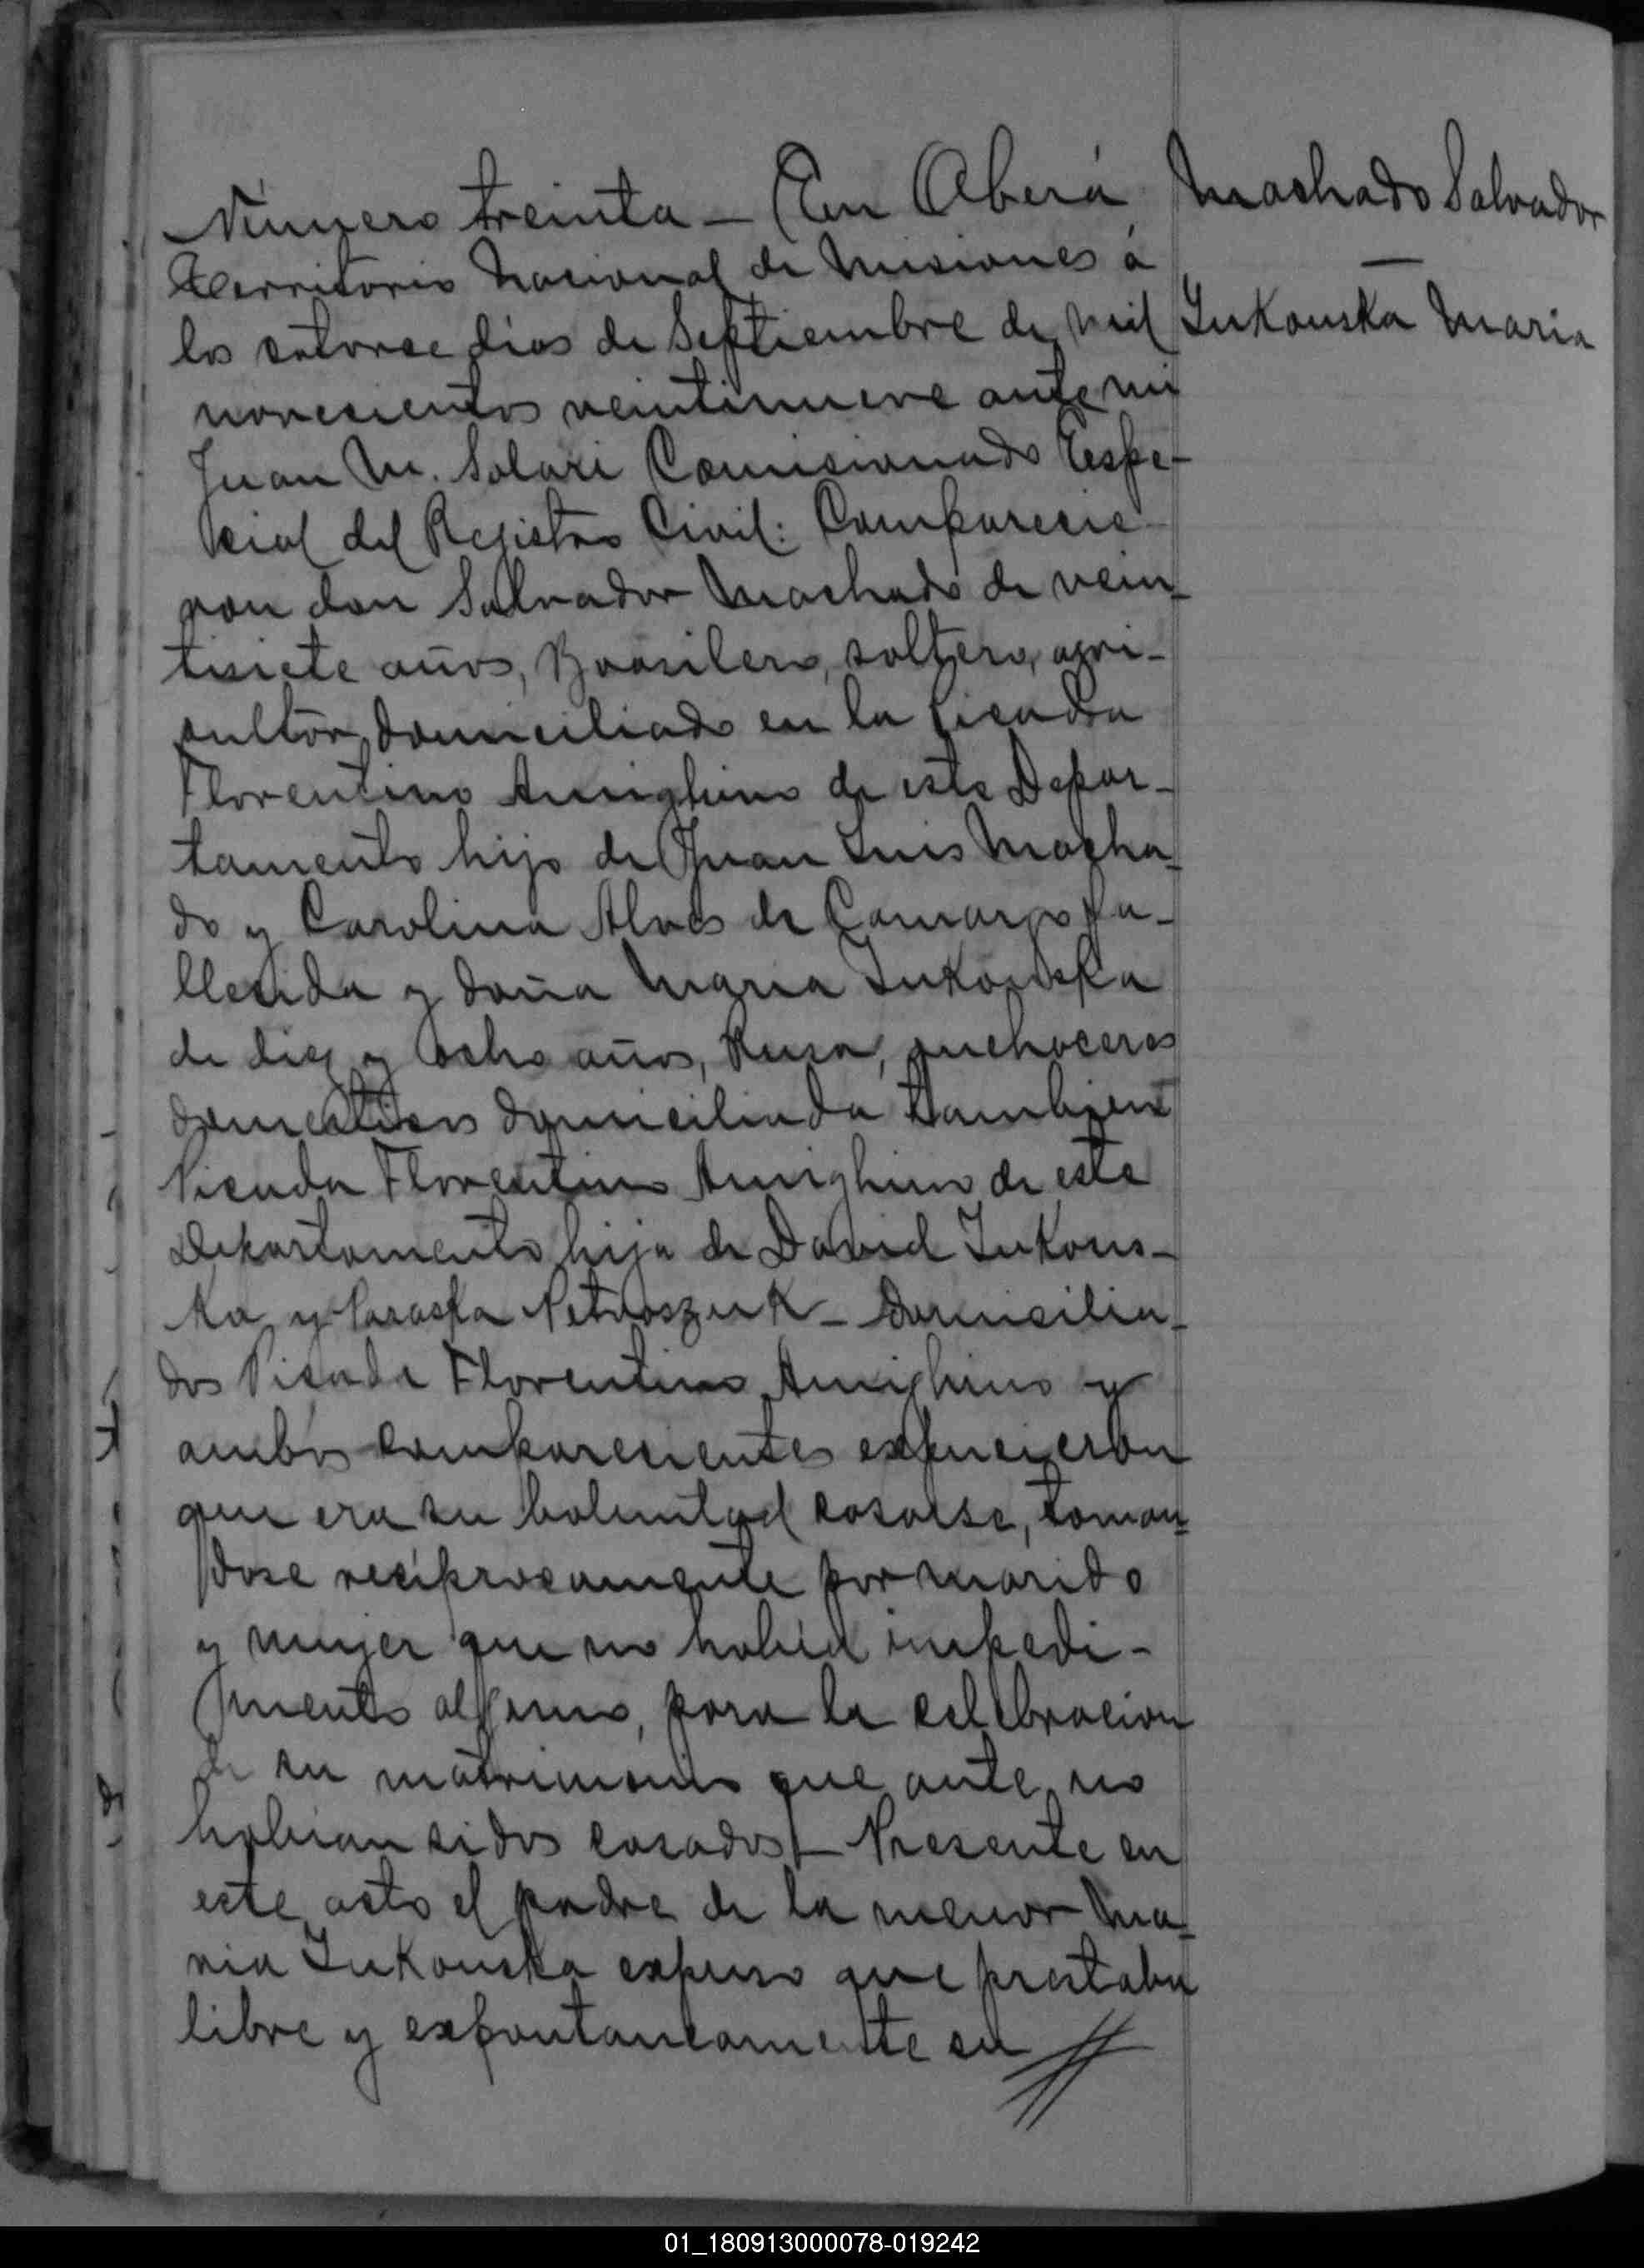 Número treinta — En Oberá
Machado Salvador
—
Territorio Nacional de Misiones á
los catorce dias de Septiembre de mil
Lukouska Maria
novecientos veintinueve ante mi
Juan M. Solari Comisionado Espe-
cial del Registro Civil: Comparecie-
ron don Salvador Machado de vein-
tisiete años, Brasilero, soltero, agri-
cultor, domiciliado en la Picada
Florentino Amighino de este Depar-
tamento hijo de Juan Luis Macha-
do y Carolina Alves de Camargo fa-
llecida y doña Maria Lukouska
de diez y ocho años, Rusa, quehaceres
domesticos domiciliada tambien
Picada Florentino Amighino de este
Departamento hija de David Lukous-
ka y Paraska Petroszuk — domicilia-
dos Picada Florentino Amighino y
ambos comparecientes expucieron
que era su boluntad casarse, toman-
dose recíprocamente por marido
y mujer que no había impedi-
mento alguno, para la celebracion
de su matrimonio que ante no
habian sidos casados — Presente en
este acto el padre de la menor Ma-
ria Lukouska expuso que prestaba
libre y expontaneamente su //
01_180913000078-019242